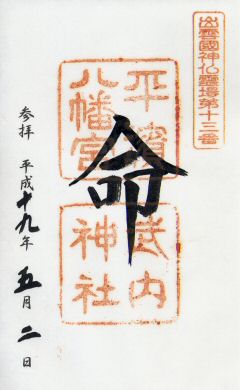 出雲國神仏霊場第十三番
平濱
八幡宮
武内
神社
命
参拝 平成十九年五月二日